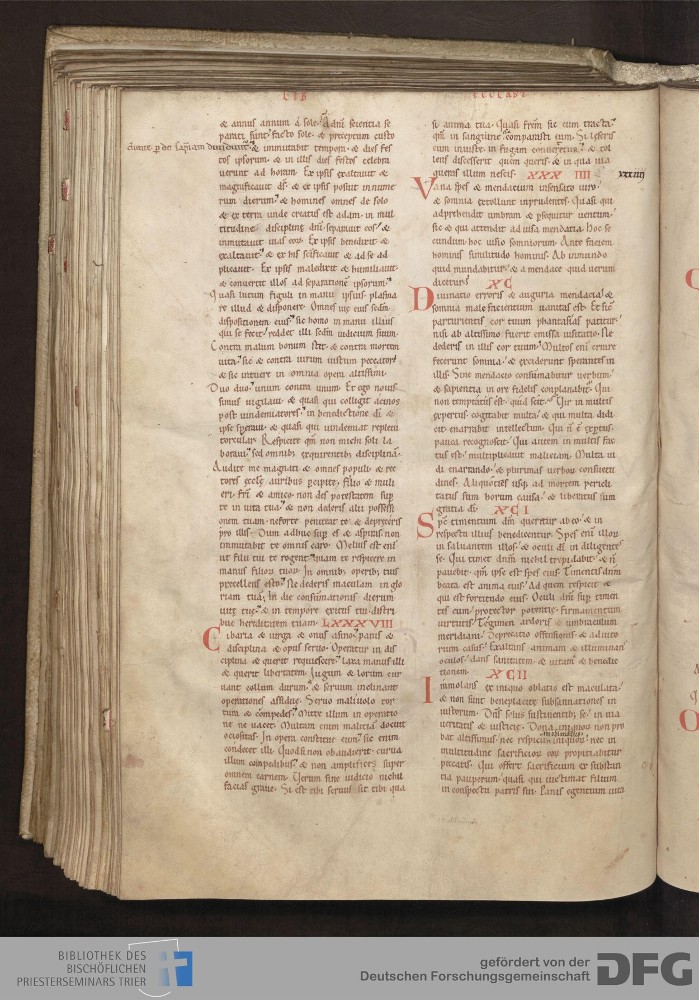 LIB
ECCLASI
& annus annum a sole. A dn̄i scientia se
parati sunt facto sole. & preceptum custo
dient p de sapiam diuidunt.
& inmutabit tempora. & dies fes
tos ipsorum. & in illis dies festos celebra
uerunt ad horam. Ex ipsis exaltauit &
magnificauit d̄s. & ex ipsis posuit in nume
rum dierum. & homines omnes de solo
& ex terra unde creatus est adam. in mul
titudine discipline dn̄i separauit eos. &
inmutauit uias eor. Ex ipsis benedixit &
exaltauit. & ex his sc̄ificauit & ad se ad
plicauit. Ex ipsis maledixit & humiliauit.
& conuertit illos ad separatione ipsorum.
Quasi lutum figuli in manu ipsius plasma
re illud & disponere. Omnes uie eius sedm
dispositionem eius. sic homo in manu illius
qui se fecit. reddet illi sedm iudicium suum.
Contra malum bonum est. & contra mortem
uita. sic & contra uirum iustum peccator.
& sic intuere in omnia opera altissimi.
Duo duo. unum contra unum. Et ego nouis
simus uigilaui. & quasi qui colligit acinos
post uindemiatores. in benedictione di &
ipse speraui. & quasi qui uindemiat repleui
torcular. Respicite qm̄ non michi soli la
boraui. sed omnib; exquirentib; disciplinā.
Audite me magnati & omnes populi. & rec
tores eccl̄e auribus pcipite. filio & muli
eri. fri & amico. non des potestatem sup
te in uita tua. & non dederis alii possessi
onem tuam. ne forte peniteat te. & depreceris
pro illis. Dum adhuc sup es & aspiras non
inmutabit te omnis caro. Melius est eni
ut filii tui te rogent. quam te respicere in
manus filior tuor. In omnib; operib; tuis
precellens esto. Ne dederis maculam in glo
riam tua. In die consummationis dierum
uite tue. & in tempore exitus tui distri
bue hereditatem tuam. LXXXVIII
Cibaria & uirga & onus asino. panis &
disciplina & opus seruo. Operatur in dis
ciplina & querit requiescere. laxa manus illi
& querit libertatem. Iugum & lorum cur
uant collum durum. & seruum inclinant
operationes assidue. Seruo maliuolo tor
tura & compedes. Mitte illum in operatio
ne ne uacet. Multam enim maliciā docuit
ociositas. In opera constitue eum. sic enim
condecet illi. Quod si non obaudierit. curua
illum compedibus. & non amplifices super
omnem carnem. Verum sine iudicio nichil
facias graue. Si est tibi seruus sit tibi qua
si anima tua. Quasi frem sic eum tracta.
qm̄ in sanguine comparasti eum. Si leseris
eum iniuste. in fugam conuertetur. & tol
lens discesserit quem queris. & in qua uia
queras illum nescis. XXX IIII
xxxiiij
Vana spes & mendacium insensato uiro.
& somnia extollunt inprudentes. Quasi qui
adprehendit umbram & psequitur uentum.
sic & qui attendit ad uisa mendatia. Hoc se
cundum hoc uisio somniorum. Ante faciem
hominis similitudo hominis. Ab inmundo
quid mundabitur. & a mendace quid uerum
dicetur. XC
Diuinatio erroris & auguria mendatia. &
somnia male facientium uanitas est. Et sic
parturientis cor tuum phantasias patitur.
nisi ab altissimo fuerit emissa uisitatio. Ne
dederis in illis cor tuum. Multos eni errare
fecerunt somnia. & exciderunt sperantes in
illis. Sine mendacio consumabitur uerbum.
& sapientia in ore fidelis conplanabit. Qui
non temptatus est. quid scit. Vir in multis
expertus. cogitabit multa. & qui multa didi
cit enarrabit intellectum. Qui n̄ ē exptus.
pauca recognoscit. Qui autem in multis fac
tus est. multiplicauit maliciam. Multa ui
di enarrando. & plurimas uerbor consuetu
dines. Aliquoties usq; ad mortem pericli
tatus sum horum causa. & liberatus sum
gratia di. XCI
Spc timentium dm̄ queritur ab eo. & in
respectu illius benedicentur. Spes eni illor
in saluantem illos. & oculi di in diligentes
se. Qui timet dnm nichil trepidabit. & n̄
pauebit. qm̄ ipse est spes eius. Timentis dnm
beata est anima eius. Ad quem respicit &
qui est fortitudo eius. Oculi dni sup timen
tes eum. protector potentie. firmamentum
uirtutis. Tegimen ardoris & umbraculum
meridiani. Deprecatio offensionis & adiuto
rium casus. Exaltans animam & illuminans
oculos. dans sanitatem & uitam & benedic
tionem. XCII
Immolans ex iniquo oblatio est maculata.
& non sunt beneplacite subsannationes in
iustorum. Dns solus sustinentib; se. in uia
ueritatis & iusticie. Dona iniquor non pro
bat altissimus. nec respicit in iniquor. nec in
multitudine sacrificior eor propitiabitur
peccatis. Qui offert sacrificium ex substan
tia pauperum. quasi qui uictimat filium
in conspectu patris sui. Panis egentium uita
BIBLIOTHEK DES
BISCHÖFLICHEN
PRIESTERSEMINARS TRIER
gefördert von der
Deutschen Forschungsgemeinschaft
DFG